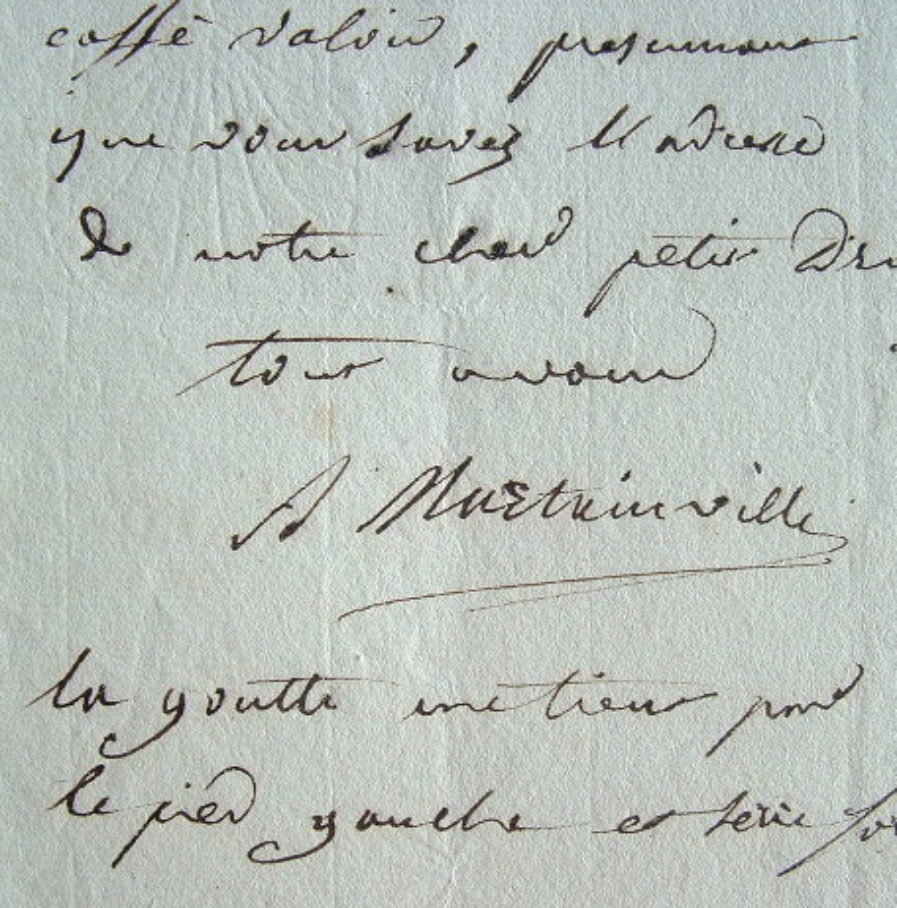 caffé valois, presumant
que vous savez l'adresse
de notre cher petit
tout a vous
A Martainville
la goutte me tient par
le pied gauche et serre